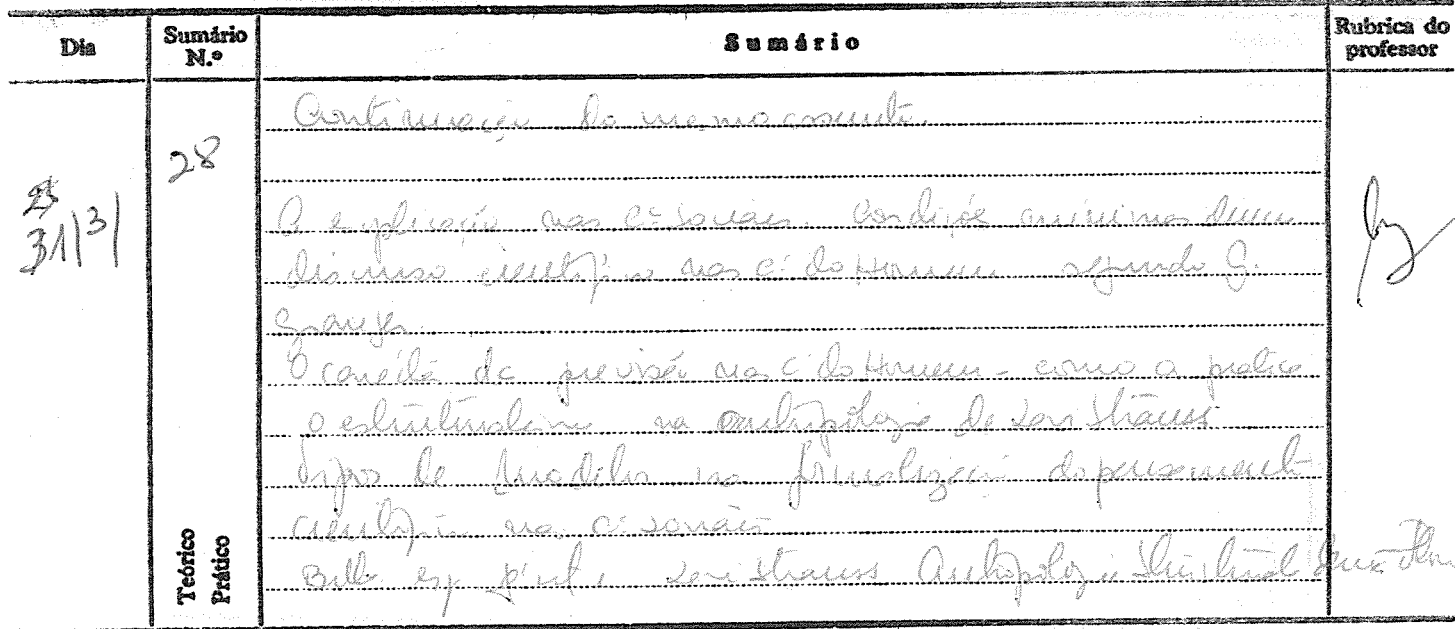 Dia
Sumário N.º
Sumário
Rubrica do professor
28
31/3/
Continuação do mesmo assunto.
A explicação nas Cas Sociais. Condições mínimas dum
discurso científico nas C. do Homem segundo G.
Granger.
O conceito de previsão nas C. do Homem - como a pratica
O estruturalismo na antropologia de Levi Strauss
Tipos de modelos na formalização do pensamento
científico nas C. sociais
Levi Strauss Anthropologie Structural
Teórico
Prático